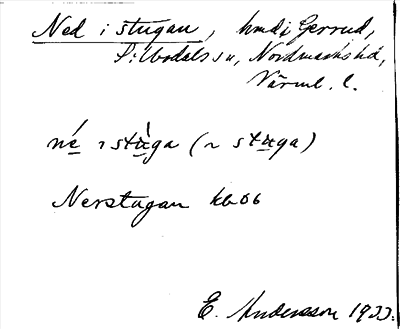 Ned i stugan, hmd i Gerrud,
Sillbodals sn, Nordmarks hd,
Värml. l.
né ı stùga (~ stuga)
Nerstugan kb 06
E. Andersson 1933.